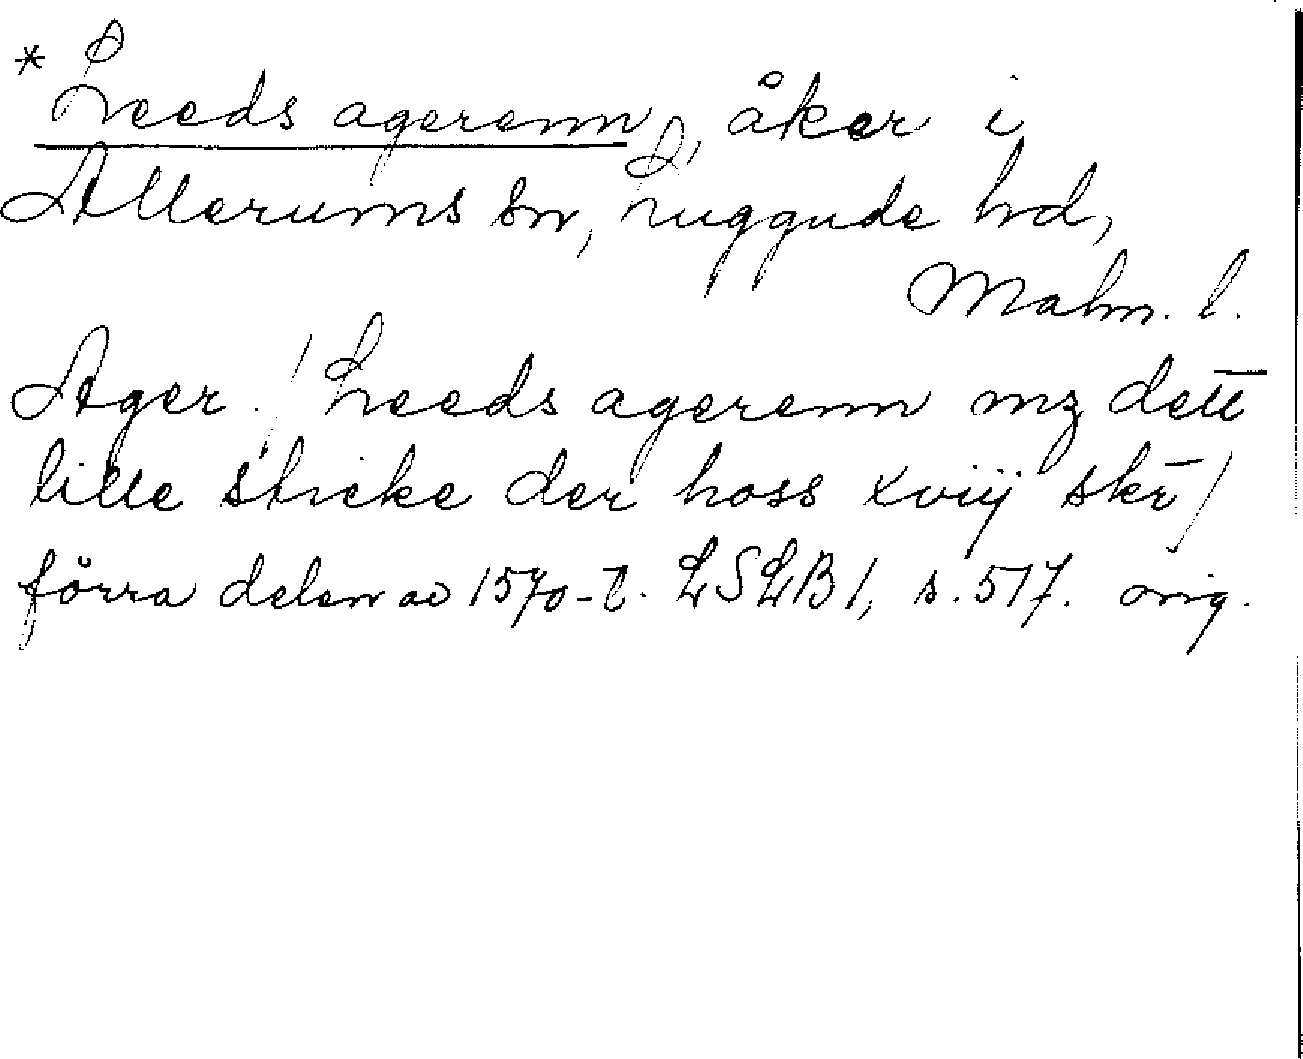 *Leeds agerenn, åker i
Allerums sn, Luggude hd,
Malm. l.
Ager. / Leeds agerenn mz det̅t̅
lille sticke der hoss xviij skr̅ /
förra delen av 1570-t. LSLB 1, s. 517. orig.